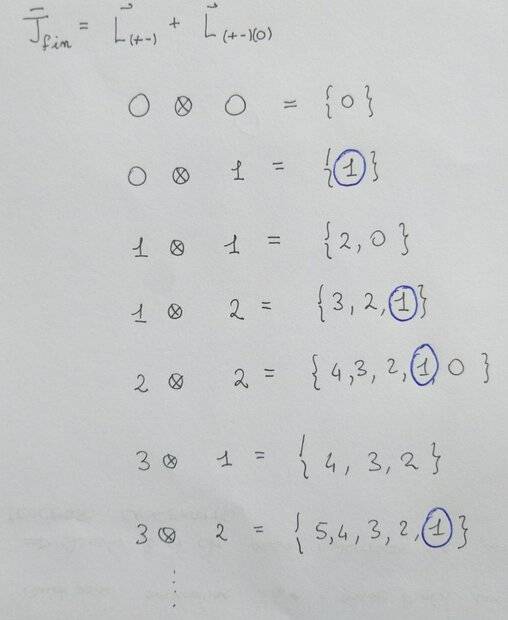 J⃗_fin = L⃗_(+-) + L⃗_(+-)(0)
0 ⊗ 0 = {0}
0 ⊗ 1 = {1}
1 ⊗ 1 = {2, 0}
1 ⊗ 2 = {3, 2, 1}
2 ⊗ 2 = {4, 3, 2, 1, 0}
3 ⊗ 1 = {4, 3, 2}
3 ⊗ 2 = {5, 4, 3, 2, 1}
⋮